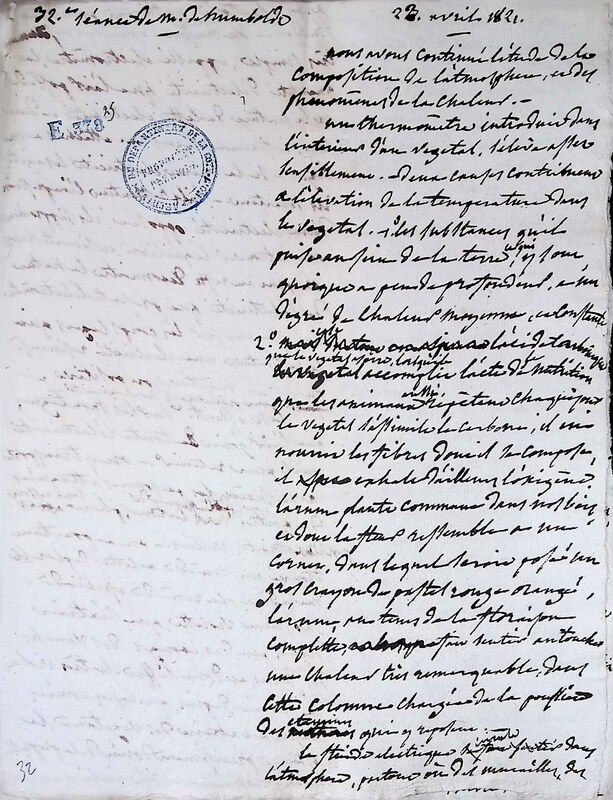 32.e séance de M. de Humboldt
23. avril 1821.
nous avons continué l'étude de la
composition de l'atmosphere, et des
phenomènes de la chaleur. —
un thermomètre introduit dans
l'interieur d'un vegetal, s'élève assez
sensiblement. — deux causes contribuent
a l'élévation de la temperature dans
le vegetal. 1° les substances qu'il
puise au sein de la terre, et qui y sont
quoique a peu de profondeur, a un
dégré de chaleur moyenne, et constante
2.° l'acide carbonique
que le vegetal aspire, lorsqu'il
accomplit l'acte de nutrition
que les animaux répètent chaque jour
le vegetal s'assimile le carbone, il en
nourrit les fibres dont il se compose,
il exhale d'ailleurs l'oxigène
l'arum plante commune dans nos bois
et dont la fleur ressemble a un
cornet, dans lequel seroit posé un
gros crayon de pastel rouge orangé,
l'arum au tems de la floraison
complette, fait sentir au toucher
une chaleur très remarquable, dans
cette colonne chargée de la poussière
des étamines qui y repose.
le fluide électrique dans
l'atmosphère, partout où des
E 378
25
ARCHIVES DU DEPARTEMENT DE LA COTE-D'OR
PROPRIÉTÉ
32